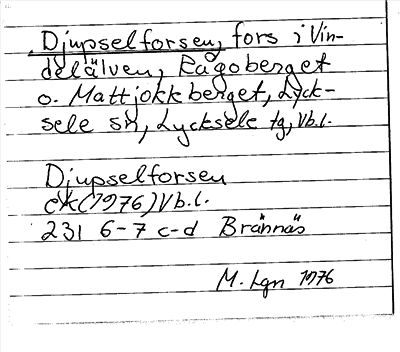 Djupselforsen, fors i Vin-
delälven, Rågoberget
o. Mattjokkberget, Lyck-
sele sn, Lycksele tg, Vb.l.
Djupselforsen
ek (1976) Vb.l.
231 6-7 c-d Brännäs
M. Lgn 1976